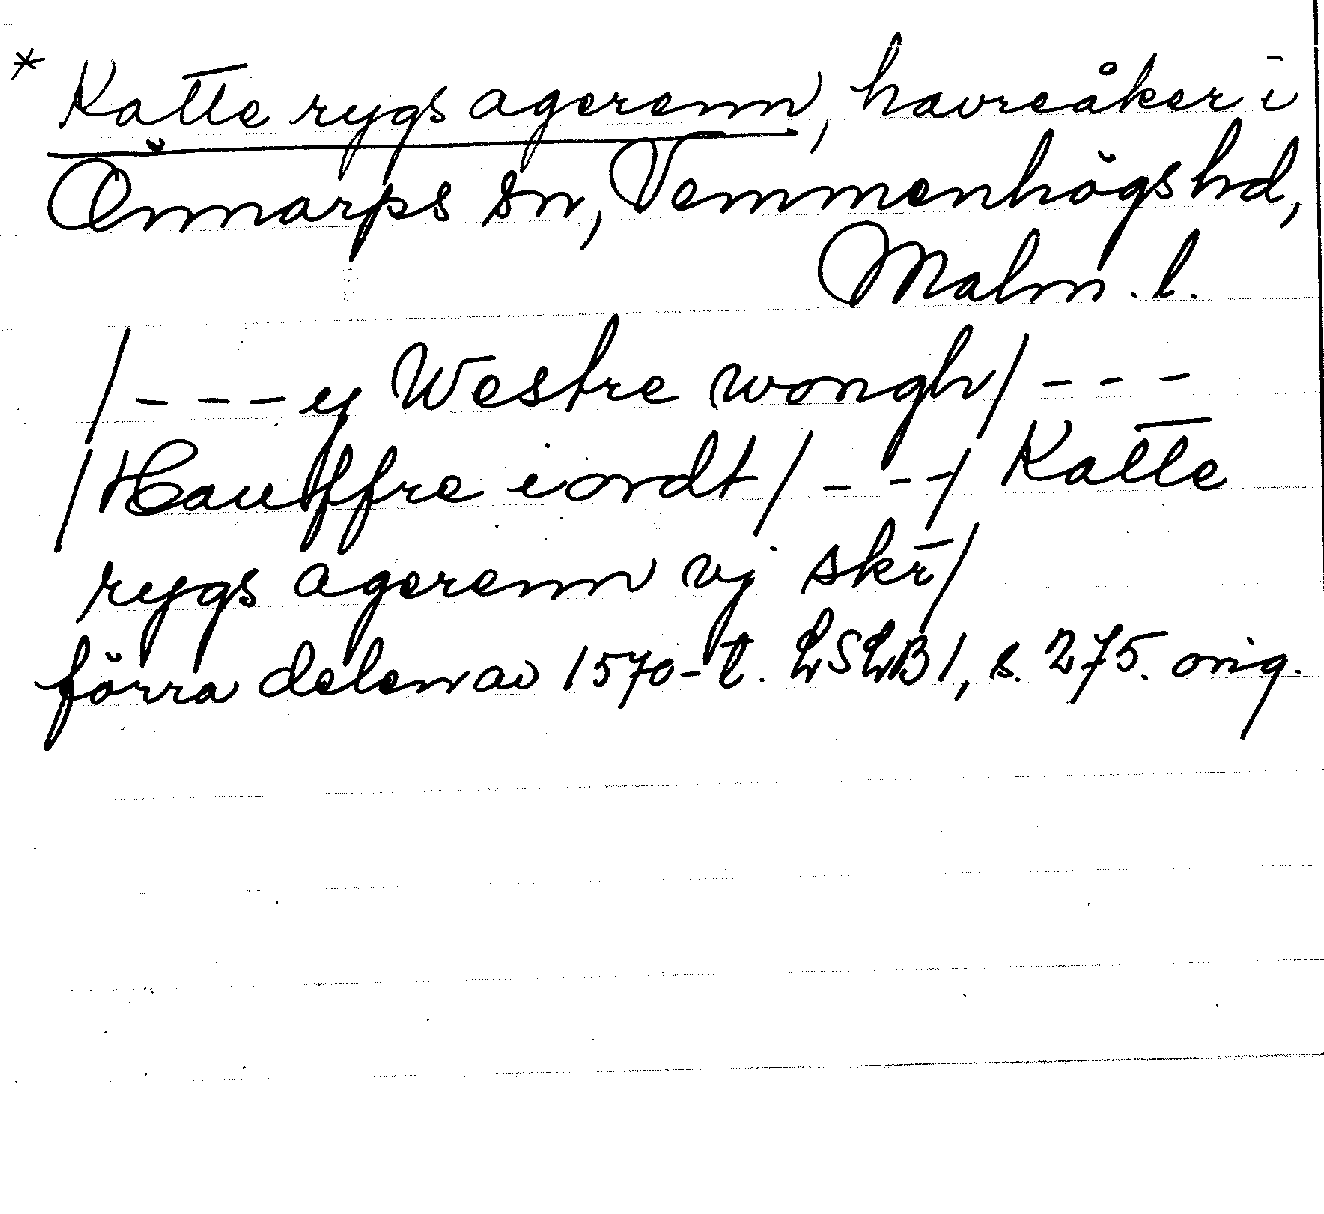 * Katte rygs agerenn, havreåker i
Önnarps sn, Vemmenhögs hd,
Malm. l.
/---ij Westre wongh/---
/Hauffre iordt/---/Katte
rygs agerenn vj skr̄/
förra delen av 1570-t. LSLB 1, s. 275. orig.